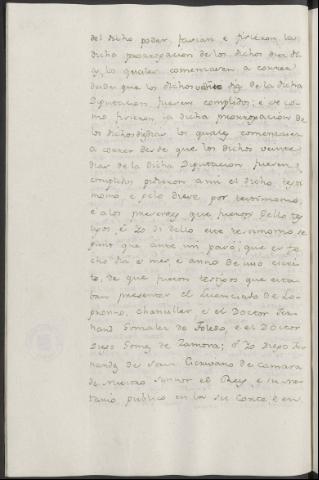 del dicho poder, facian e ficieron la
dicha prorrogacion de los dichos diez di
as, los quales comenzaren a correr
desde que los dichos veinte dias de la dicha
Diputacion fueren complidos; e de co
mo ficieron la dicha prorrogacion de
los dichos diez dias los quales comenzaren
a correr desde que los dichos veinte
dias de la dicha Diputacion fueren
complidos pidieron a mi el dicho testi
monio e pelo diese por testimonio,
e a los presentes que fuesen dello tes
tigos, e Yo di dello este testimonio, se
gund que ante mi pasó; que es fe
cho dia e mes e anno de suso escri
to, de que fueron testigos que esta
ban presentes el licenciado de Lo
gronno, chanciller e el Doctor Fer
nand Gonzalez de Toledo, e el Doctor
Diego Gomez de Zamora; e Yo Diego Fer
nandez de San Escrivano de camara
de nuestro Sennor el Rey, e su no
tario publico en la su Corte, e en